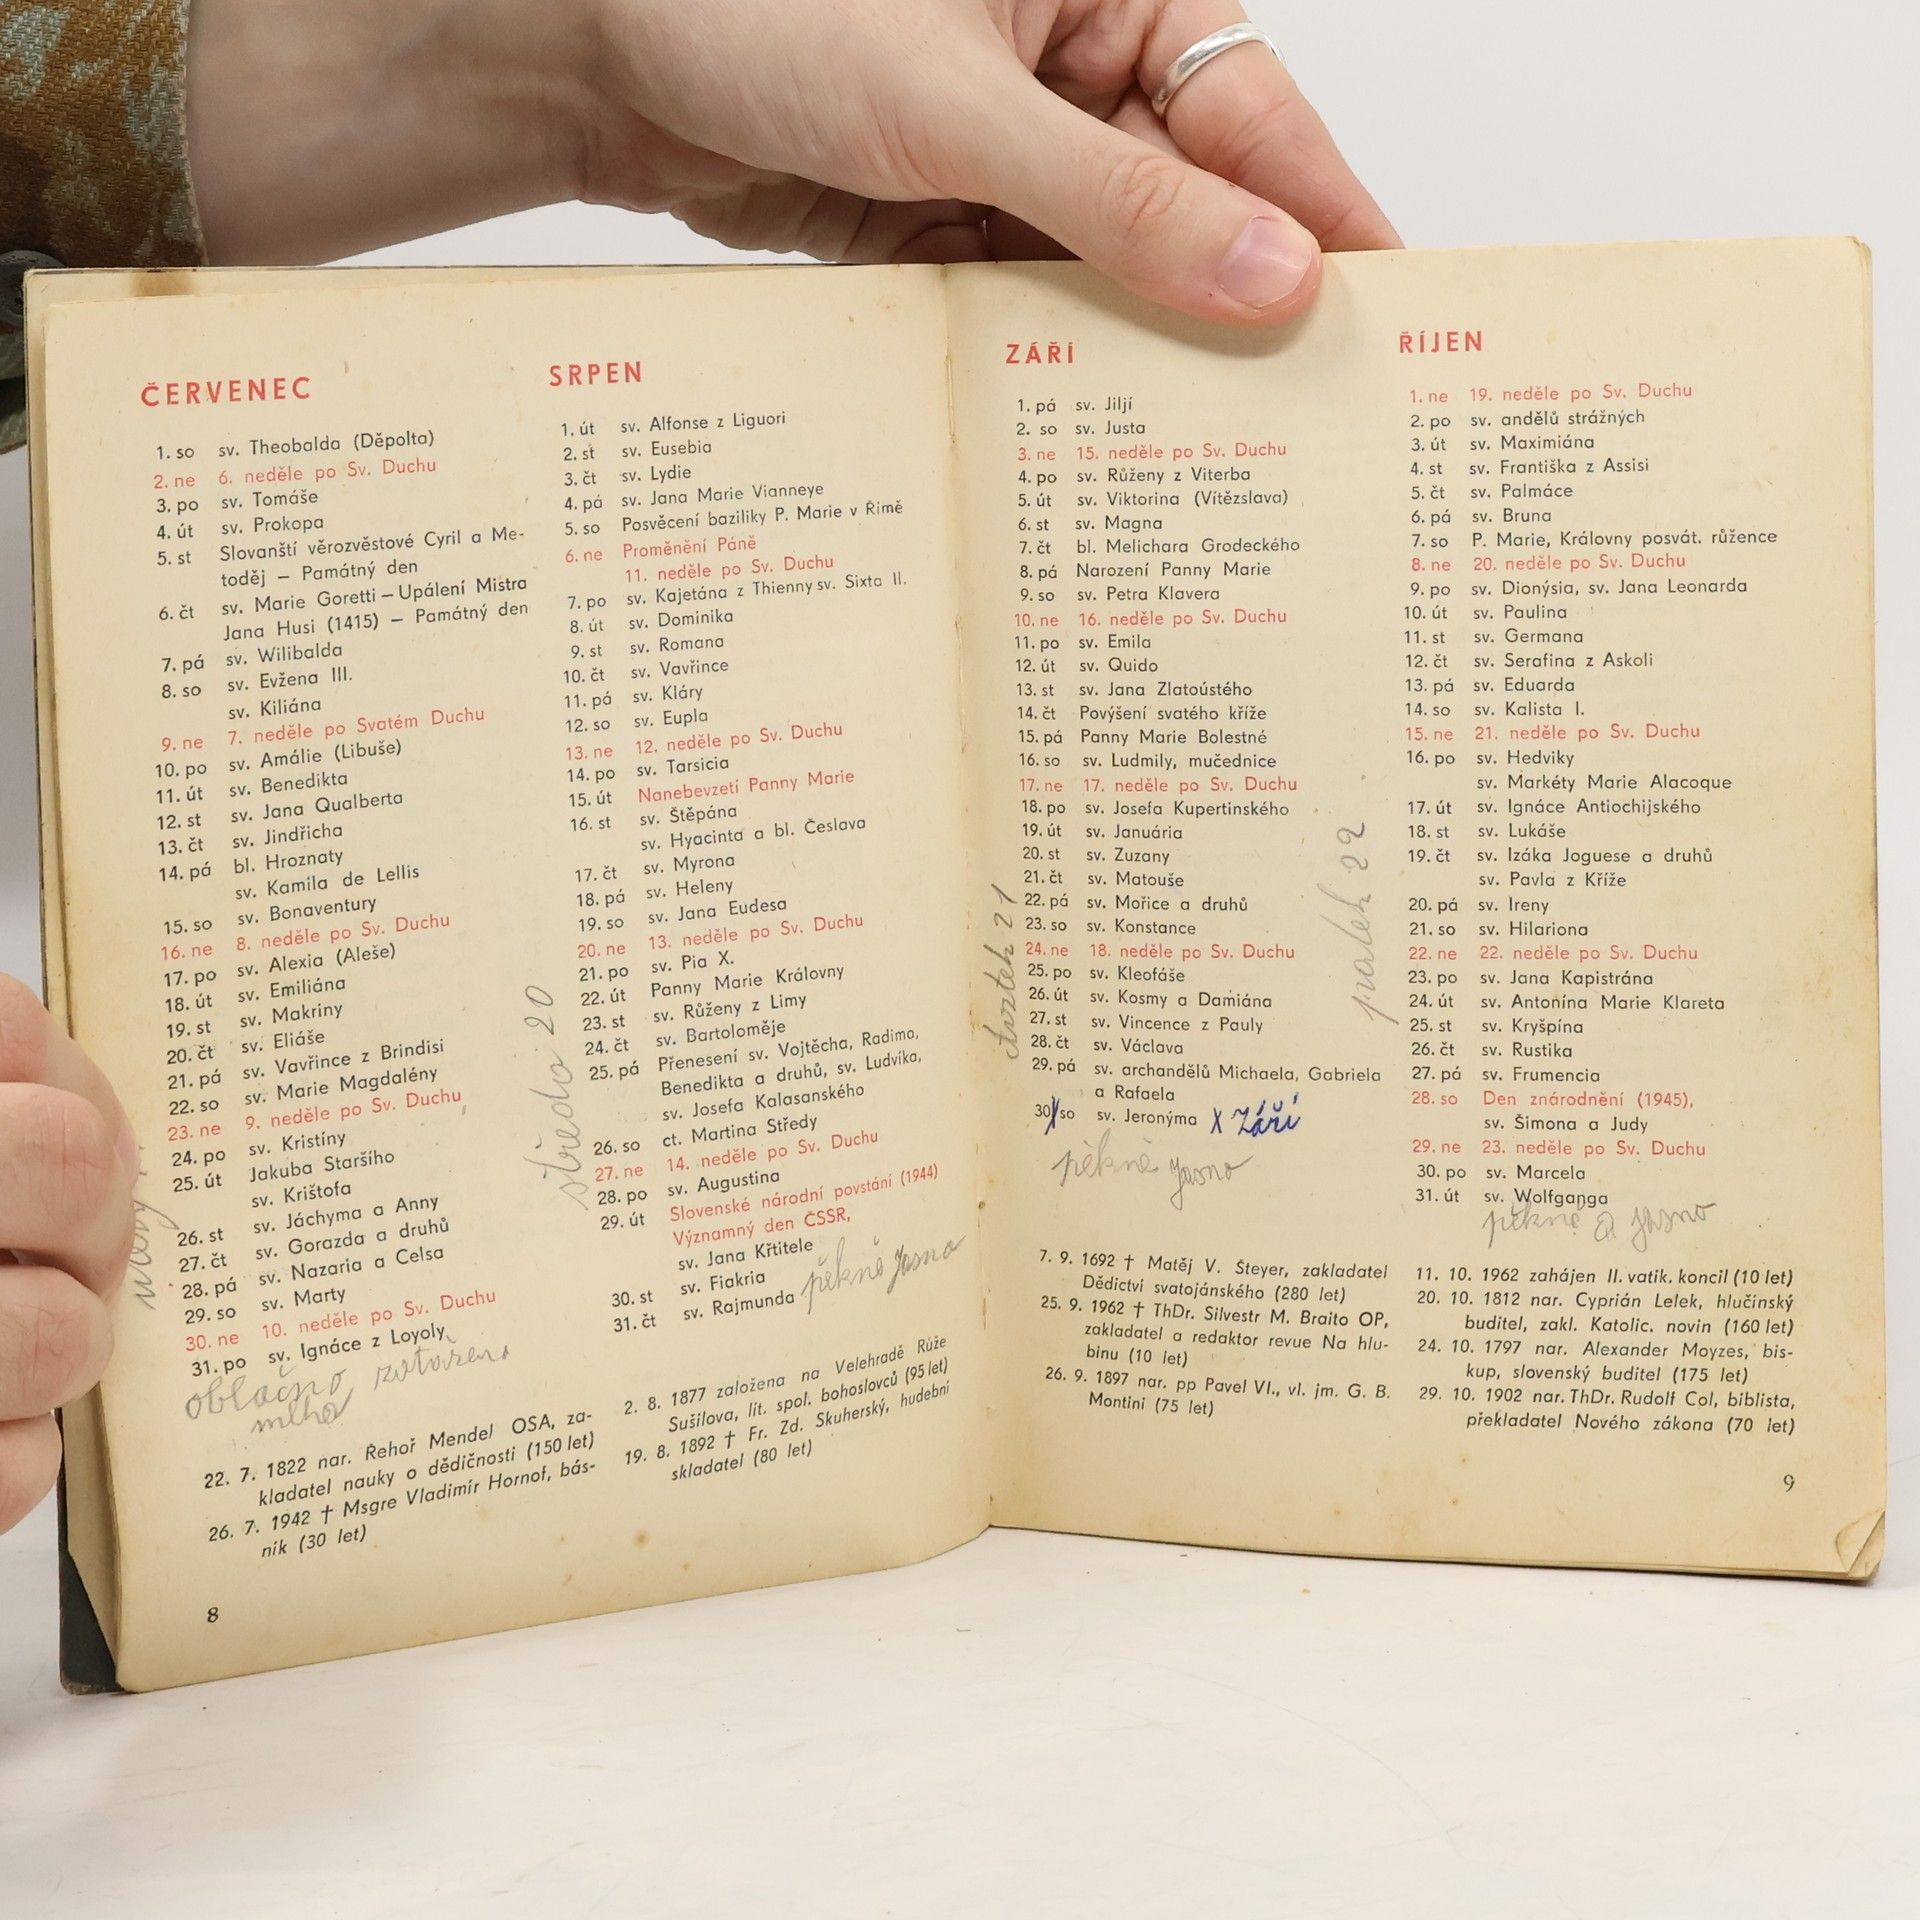 ČERVENEC
1. so sv. Theobalda (Děpolta)
2. ne 6. neděle po Sv. Duchu
3. po sv. Tomáše
4. út sv. Prokopa
5. st Slovanští věrozvěstové Cyril a Me-
toděj – Památný den
6. čt sv. Marie Goretti – Upálení Mistra
Jana Husi (1415) – Památný den
7. pá sv. Wilibalda
8. so sv. Evžena III.
sv. Kiliána
9. ne 7. neděle po Svatém Duchu
10. po sv. Amálie (Libuše)
11. út sv. Benedikta
12. st sv. Jana Qualberta
13. čt sv. Jindřicha
14. pá bl. Hroznaty
sv. Kamila de Lellis
15. so sv. Bonaventury
16. ne 8. neděle po Sv. Duchu
17. po sv. Alexia (Aleše)
18. út sv. Emiliána
19. st sv. Makriny
20. čt sv. Eliáše
21. pá sv. Vavřince z Brindisi
22. so sv. Marie Magdalény
23. ne 9. neděle po Sv. Duchu
24. po sv. Kristíny
25. út Jakuba Staršího
sv. Krištofa
26. st sv. Jáchyma a Anny
27. čt sv. Gorazda a druhů
28. pá sv. Nazaria a Celsa
29. so sv. Marty
30. ne 10. neděle po Sv. Duchu
31. po sv. Ignáce z Loyoly
oblačno zataženo
mlha
22. 7. 1822 nar. Řehoř Mendel OSA, za-
kladatel nauky o dědičnosti (150 let)
26. 7. 1942 † Msgre Vladimír Hornof, bás-
ník (30 let)
8
středa 20
SRPEN
1. út sv. Alfonse z Liguori
2. st sv. Eusebia
3. čt sv. Lydie
4. pá sv. Jana Marie Vianneye
5. so Posvěcení baziliky P. Marie v Římě
6. ne Proměnění Páně
11. neděle po Sv. Duchu
7. po sv. Kajetána z Thienny sv. Sixta II.
8. út sv. Dominika
9. st sv. Romana
10. čt sv. Vavřince
11. pá sv. Kláry
12. so sv. Eupla
13. ne 12. neděle po Sv. Duchu
14. po sv. Tarsicia
15. út Nanebevzetí Panny Marie
16. st sv. Štěpána
sv. Hyacinta a bl. Česlava
17. čt sv. Myrona
18. pá sv. Heleny
19. so sv. Jana Eudesa
20. ne 13. neděle po Sv. Duchu
21. po sv. Pia X.
22. út Panny Marie Královny
23. st sv. Růženy z Limy
24. čt sv. Bartoloměje
25. pá Přenesení sv. Vojtěcha, Radima,
Benedikta a druhů, sv. Ludvíka,
sv. Josefa Kalasanského
26. so ct. Martina Středy
27. ne 14. neděle po Sv. Duchu
28. po sv. Augustina
29. út Slovenské národní povstání (1944)
Významný den ČSSR,
sv. Jana Křtitele
30. st sv. Fiakria
31. čt sv. Rajmunda
pěkně jasno
2. 8. 1877 založena na Velehradě Růže
Sušilova, lit. spol. bohoslovců (95 let)
19. 8. 1892 † Fr. Zd. Skuherský, hudební
skladatel (80 let)
ZÁŘÍ
1. pá sv. Jiljí
2. so sv. Justa
3. ne 15. neděle po Sv. Duchu
4. po sv. Růženy z Viterba
5. út sv. Viktorina (Vítězslava)
6. st sv. Magna
7. čt bl. Melichara Grodeckého
8. pá Narození Panny Marie
9. so sv. Petra Klavera
10. ne 16. neděle po Sv. Duchu
11. po sv. Emila
12. út sv. Quido
13. st sv. Jana Zlatoústého
14. čt Povýšení svatého kříže
15. pá Panny Marie Bolestné
16. so sv. Ludmily, mučednice
17. ne 17. neděle po Sv. Duchu
18. po sv. Josefa Kupertinského
19. út sv. Januária
20. st sv. Zuzany
21. čt sv. Matouše
22. pá sv. Mořice a druhů
23. so sv. Konstance
24. ne 18. neděle po Sv. Duchu
25. po sv. Kleofáše
26. út sv. Kosmy a Damiána
27. st sv. Vincence z Pauly
28. čt sv. Václava
29. pá sv. archandělů Michaela, Gabriela
a Rafaela
30. so sv. Jeronýma X Září
pěkně jasno
7. 9. 1692 † Matěj V. Šteyer, zakladatel
Dědictví svatojánského (280 let)
25. 9. 1962 † ThDr. Silvestr M. Braito OP,
zakladatel a redaktor revue Na hlu-
binu (10 let)
26. 9. 1897 nar. pp Pavel VI., vl. jm. G. B.
Montini (75 let)
ŘÍJEN
1. ne 19. neděle po Sv. Duchu
2. po sv. andělů strážných
3. út sv. Maximiána
4. st sv. Františka z Assisi
5. čt sv. Palmáce
6. pá sv. Bruna
7. so P. Marie, Královny posvát. růžence
8. ne 20. neděle po Sv. Duchu
9. po sv. Dionýsia, sv. Jana Leonarda
10. út sv. Paulina
11. st sv. Germana
12. čt sv. Serafina z Askoli
13. pá sv. Eduarda
14. so sv. Kalista I.
15. ne 21. neděle po Sv. Duchu
16. po sv. Hedviky
sv. Markéty Marie Alacoque
17. út sv. Ignáce Antiochijského
18. st sv. Lukáše
19. čt sv. Izáka Joguese a druhů
sv. Pavla z Kříže
20. pá sv. Ireny
21. so sv. Hilariona
22. ne 22. neděle po Sv. Duchu
23. po sv. Jana Kapistrána
24. út sv. Antonína Marie Klareta
25. st sv. Kryšpína
26. čt sv. Rustika
27. pá sv. Frumencia
28. so Den znárodnění (1945),
sv. Šimona a Judy
29. ne 23. neděle po Sv. Duchu
30. po sv. Marcela
31. út sv. Wolfganga
pěkně a jasno
11. 10. 1962 zahájen II. vatik. koncil (10 let)
20. 10. 1812 nar. Cyprián Lelek, hlučínský
buditel, zakl. Katolic. novin (160 let)
24. 10. 1797 nar. Alexander Moyzes, bis-
kup, slovenský buditel (175 let)
29. 10. 1902 nar. ThDr. Rudolf Col, biblista,
překladatel Nového zákona (70 let)
9